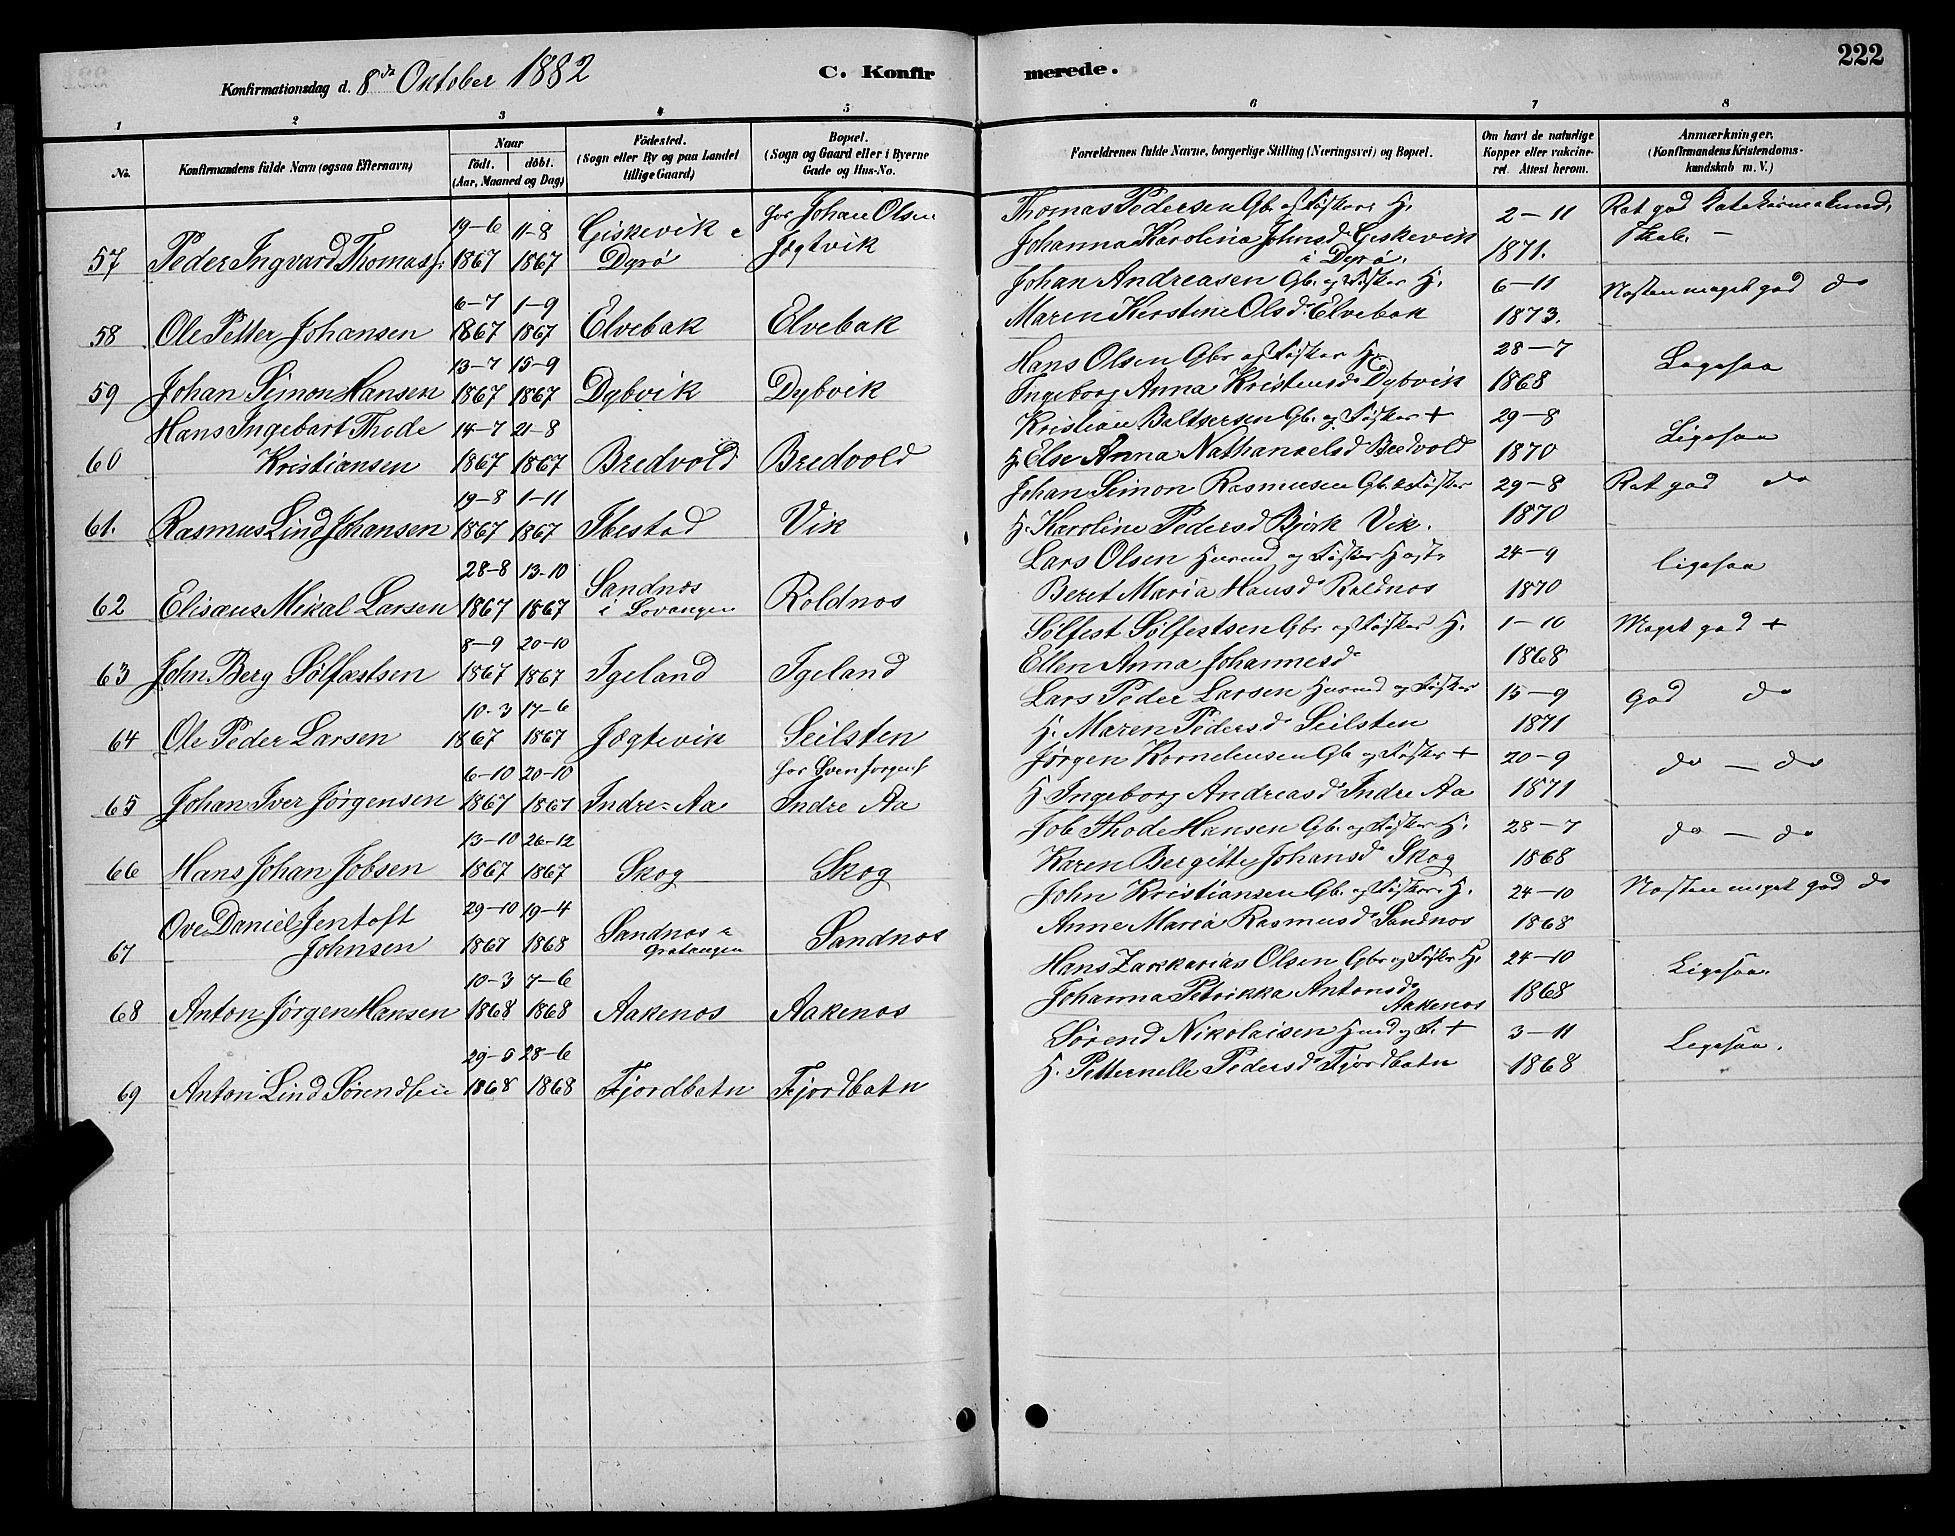 Konfirmationsdag d. 8de Oktober 1882 C. Konfir merede. 222
1 2 3 4 5 6 7 8
No. Konfirmandens fulde Navn (ogsaa Efternavn) Naar födt. döbt. (Aar, Maaned og Dag) Födested. (Sogn eller By og paa Landet tillige Gaard) Bopæl. (Sogn og Gaard eller i Byerne Gade og Hus-No.
Forældrenes fulde Navne, borgerlige Stilling (Næringsvei) og Bopæl. Om havt de naturlige Kopper eller vakcineret. Attest herom. Anmærkninger. (Konfirmandens Kristendomskundskab m. V.)
19-6 11-8 Giskevik i for Johan Olsen Thomas Pedersen Gbr. og Fisker H. 2-11 Ret god
57 Peder Ingvard Thomass. 1867 1867 Dyrø Jægtvik Johanna Karolina Johnsd. Giskevik 1871.
i Dyrø.
6-7 1-9 Johan Andreasen Gb. og Fisker H. 6-11 Næsten meget god do
58 Ole Petter Johansen 1867 1867 Elvebak Elvebak Maren Kerstine Olsd. Elvebak 1873.
13-7 15-9 Hans Olsen Gbr og Fisker H. 28-7 Ligesaa
59 Johan Simon Hansen 1867 1867 Dybvik Dybvik Ingeborg Anna Kristensd. Dybvik 1868
Hans Ingebart Thode 14-7 21-8 Kristian Baltsersen Gb. og Fisker + 29-8 Ligesaa
60 Kristiansen 1867 1867 Bredvold Bredvold H. Else Anna Nathanaelsd Bredvold 1870
19-8 1-11 Johan Simon Rasmusen Gb. & Fisker 29-8 Ret god do
61. Rasmus Lind Johansen 1867 1867 Ibestad Vik H. Karoline Pedersd Björk Vik. 1870
28-8 13-10 Sandnæs Lars Olsen Husmd og Fisker 24-9 ligesaa
62 Elisæus Mikal Larsen 1867 1867 i Lovangen Roldnæs Beret Maria Hansd. Roldnæs 1870
8-9 20-10 Sølfest Sølfestsen Gbr og Fisker H. 1-10 Meget god +
63 John Berg Sølfæstsen 1867 1867 Igeland Igeland Ellen Anna Johannesd 1868
10-3 17-6 Lars Peder Larsen Husmd og Fisker 15-9 god do
64 Ole Peder Larsen 1867 1867 Jægtevik Seilsten H. Maren Pedersd. Seilsten 1871
6-10 20-10 for Sven Jörgens. Jørgen Kornelensen Gb og Fisker + 20-9 do - do
65 Johan Iver Jørgensen 1867 1867 Indre-Aa Indre Aa H. Ingeborg Andreasd Indre Aa 1871
13-10 26-12 Job Thode Hansen Gb. og Fisker H. 28-7 do - do
66 Hans Johan Jobsen 1867 1867 Skog Skog Karen Bergitte Johansd. Skog 1868
Ove Daniel Jentoft 29-10 19-4 Sandnæs i John Kristiansen Gb. og Fisker H. 24-10 Næsten meget god do
67 Johnsen 1867 1868 Gratangen Sandnæs Anne Maria Rasmusd. Sandnæs 1868
10-3 7-6 Hans Zakkarias Olsen Gbr og Fisker H. 24-10 Ligesaa.
68 Anton Jørgen Hansen 1868 1868 Aakenæs Aakenæs Johanna Petrikka Antonsd. 1868
Aakenæs
29-5 28-6 Sørend Nikolaisen Hmd og F. + 3-11 Ligesaa.
69 Anton Lind Sørendsen 1868 1868 Fjordbotn Fjordbotn H. Petternelle Pedersd Fjordbotn 1868